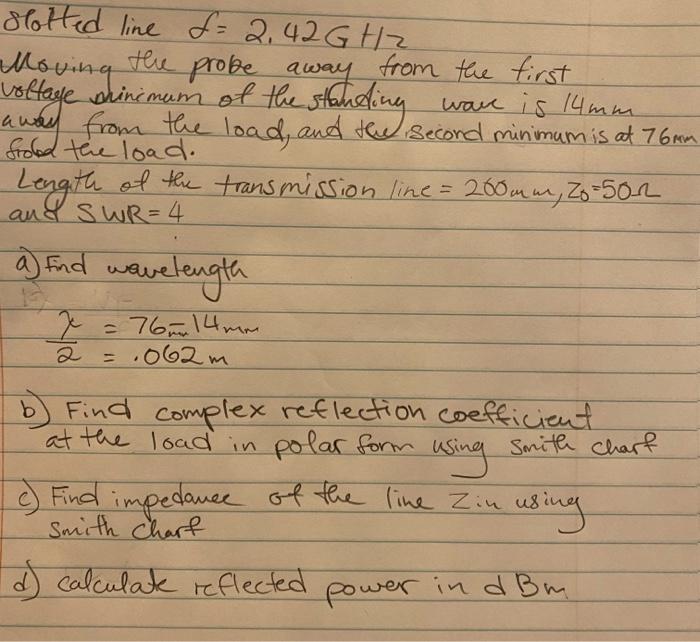 Slotted line f = 2.42 GHz
Moving the probe away from the first
voltage minimum of the standing wave is 14mm
away from the load, and the second minimum is at 76mm
the load.
Length of the transmission line = 200mm, Z0=50Ω
and SWR = 4
a) Find wavelength
λ/2 = 76mm-14mm
= .062 m
b) Find complex reflection coefficient
at the load in polar form using smith chart
c) Find impedance of the line Zin using
smith chart
d) calculate reflected power in dBm